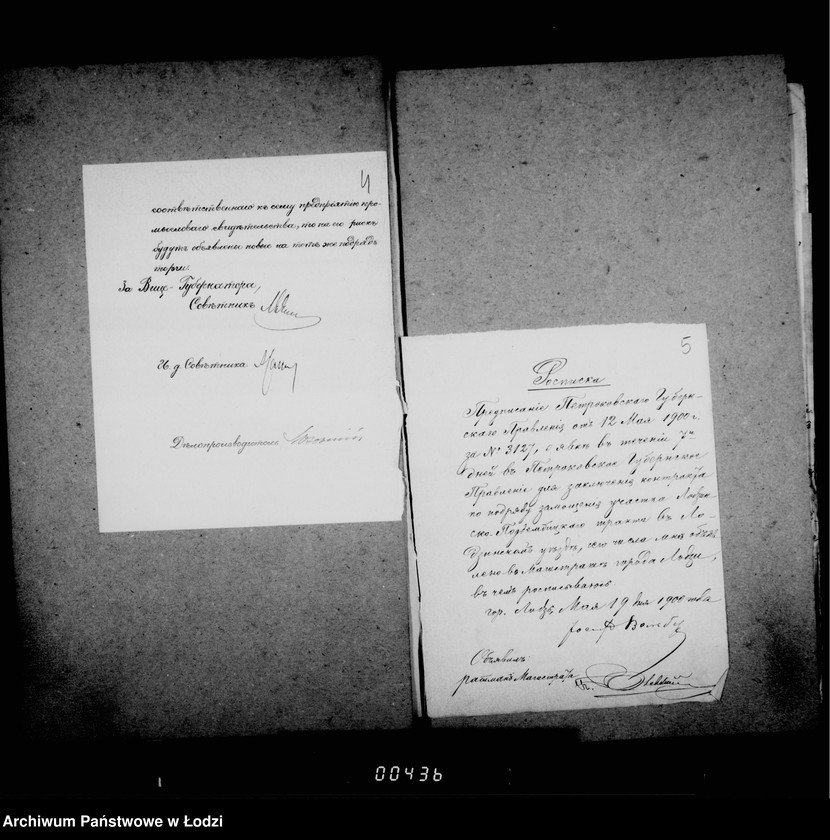 4
соотвѣтственнаго къ сему предпріятію про-
мысловаго свидѣтельства, то на его рискъ
будутъ объявлены новые на тотъ же подрядъ
торги.
За Вице-Губернатора,
Совѣтникъ
И. д. Совѣтника
Дѣлопроизводитель
5
Росписка
Предписаніе Петроковскаго Губерн-
скаго Правленія отъ 12 Мая 1900 г.
за № 3127, о явкѣ въ теченіи 7и
дней въ Петроковское Губернское
Правленіе для заключенія контракта
по подряду замощенія участка Лодзи-
ско-Поддембицкаго тракта въ Ло-
дзинскомъ уѣздѣ, сего числа мнѣ объяв
лено въ Магистратѣ города Лодзи,
въ чемъ росписываюсь.
гор. Лодзь Мая 19 дня 1900 года
Объявилъ
ратманъ Магистрата
00436
Archiwum Państwowe w Łodzi